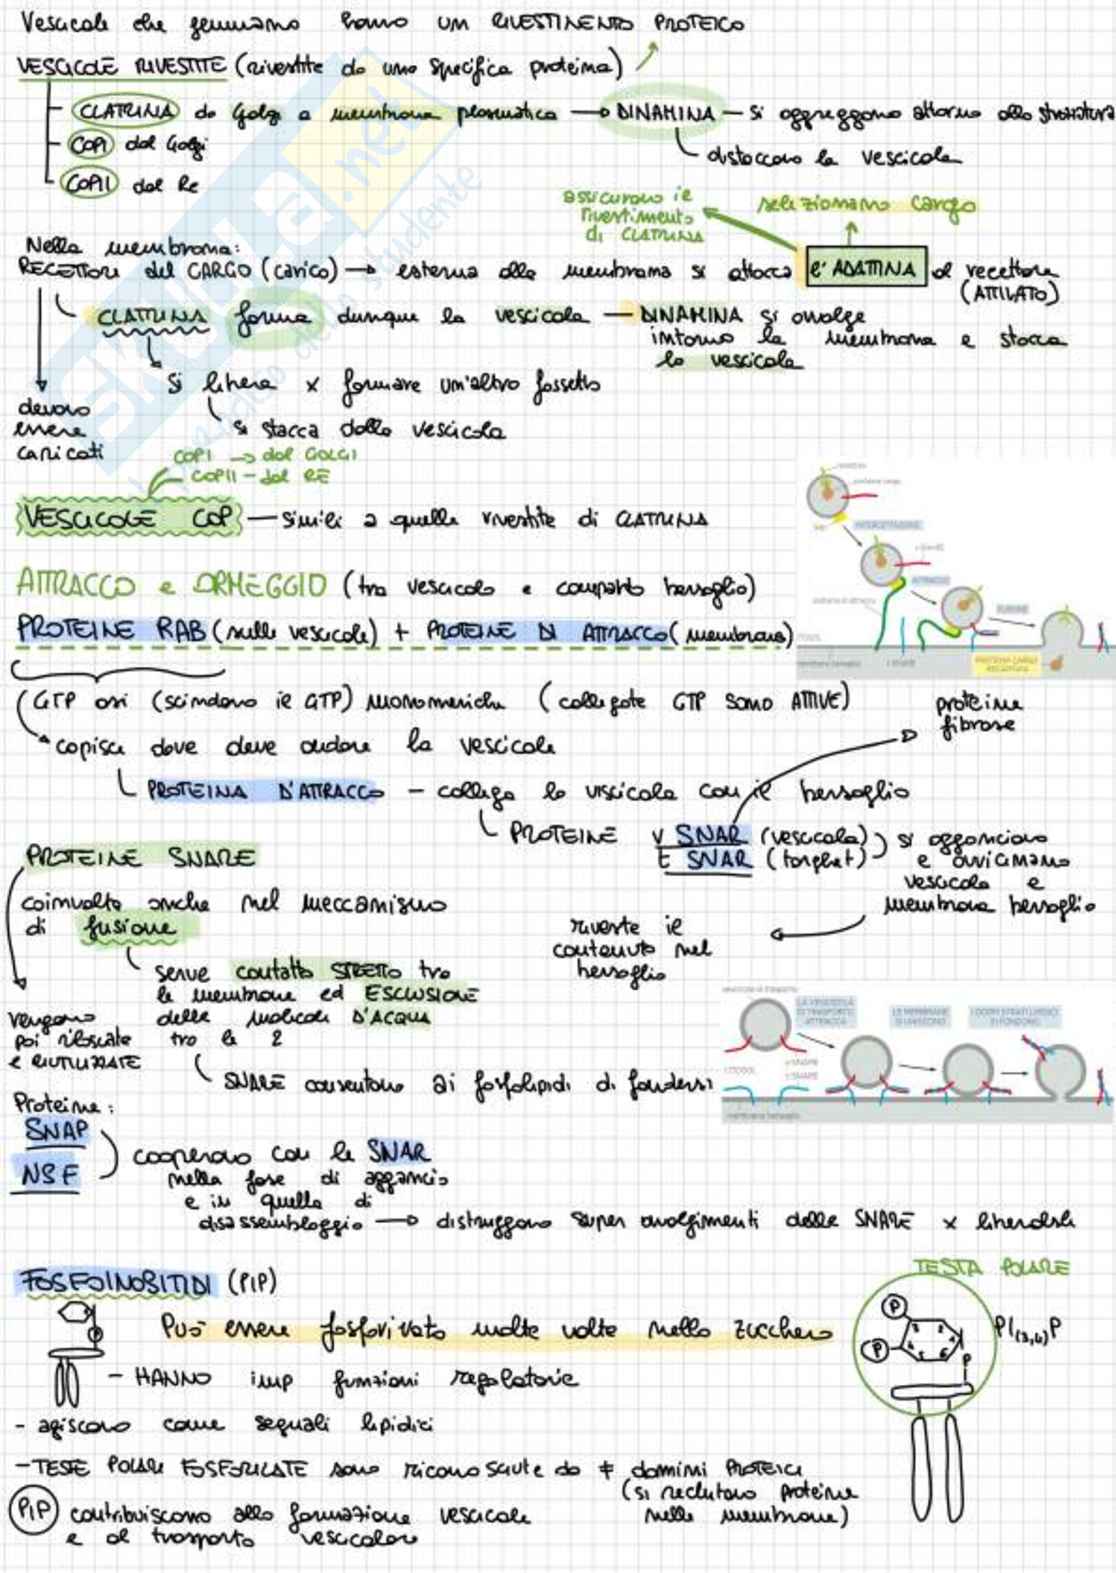 Vescicole che gemmano hanno un RIVESTIMENTO PROTEICO
VESCICOLE RIVESTITE (rivestite da una specifica proteina)
CLATRINA da Golgi a membrana plasmatica → DINAMINA — si aggreggano attorno alla struttura
COPI dal Golgi
distaccano la vescicola
COPII dal Re
assicurano il
rivestimento
di CLATRINA
selezionano cargo
Nella membrana:
RECETTORI del CARGO (carico) → esterna alla membrana si attacca l'ADATTINA al recettore
(ATTILATO)
CLATRINA forma dunque la vescicola — DINAMINA si avvolge
intorno la membrana e stacca
la vescicola
si libera x formare un'altro fossetto
devono
essere
caricati
si stacca dalla vescicola
COPI → dal GOLGI
COPII - dal RE
VESCICOLE COP — simili a quelle rivestite di CLATRINA
INTERCETTAZIONE
ATTRACCO
FUSIONE
ATTRACCO e ORMEGGIO (tra vescicola e comparto bersaglio)
PROTEINE RAB (sulle vescicole) + PROTEINE DI ATTRACCO (membrana)
membrana bersaglio
t-SNARE
GTP asi (scindono il GTP) monomeriche (collegate GTP SONO ATTIVE)
proteine
fibrose
capisce dove deve andare la vescicola
PROTEINA D'ATTRACCO - collega la viscicola con il bersaglio
PROTEINE V SNAR (vescicola)
t SNAR (targhet)
si agganciano
e avvicinano
vescicola e
membrana bersaglio
PROTEINE SNARE
coinvolte anche nel meccanismo
di fusione
riveste il
contenuto nel
bersaglio
serve contatto STRETTO tra
le membrane ed ESCLUSIONE
delle molecole D'ACQUA
tra le 2
vengono
poi rilasciate
e RIUTILIZZATE
LA VESCICOLA
DI TRASPORTO
ATTRACCA
LE MEMBRANE
SI UNISCONO
I DOPPI STRATI LIPIDICI
SI FONDONO
CITOSOL
v-SNARE
t-SNARE
membrana bersaglio
SNARE consentono ai fosfolipidi di fondersi
Proteine:
SNAP
NSF
cooperano con le SNAR
nella fase di aggancio
e in quella di
disassemblaggio → distruggono super avvolgimenti delle SNARE x liberarle
FOSFOINOSITIDI (PIP)
TESTA POLARE
Può essere fosforivato molte volte nello zucchero
P
P
P
PI(3,4)P
- HANNO imp funzioni regolatorie
- agiscono come segnali lipidici
- TESTE POLARI FOSFORILATE sono riconosciute da ≠ domini PROTEICI
(si reclutano proteine
nelle membrane)
PIP contribuiscono alla formazione vescicole
e al trasporto vescicolare